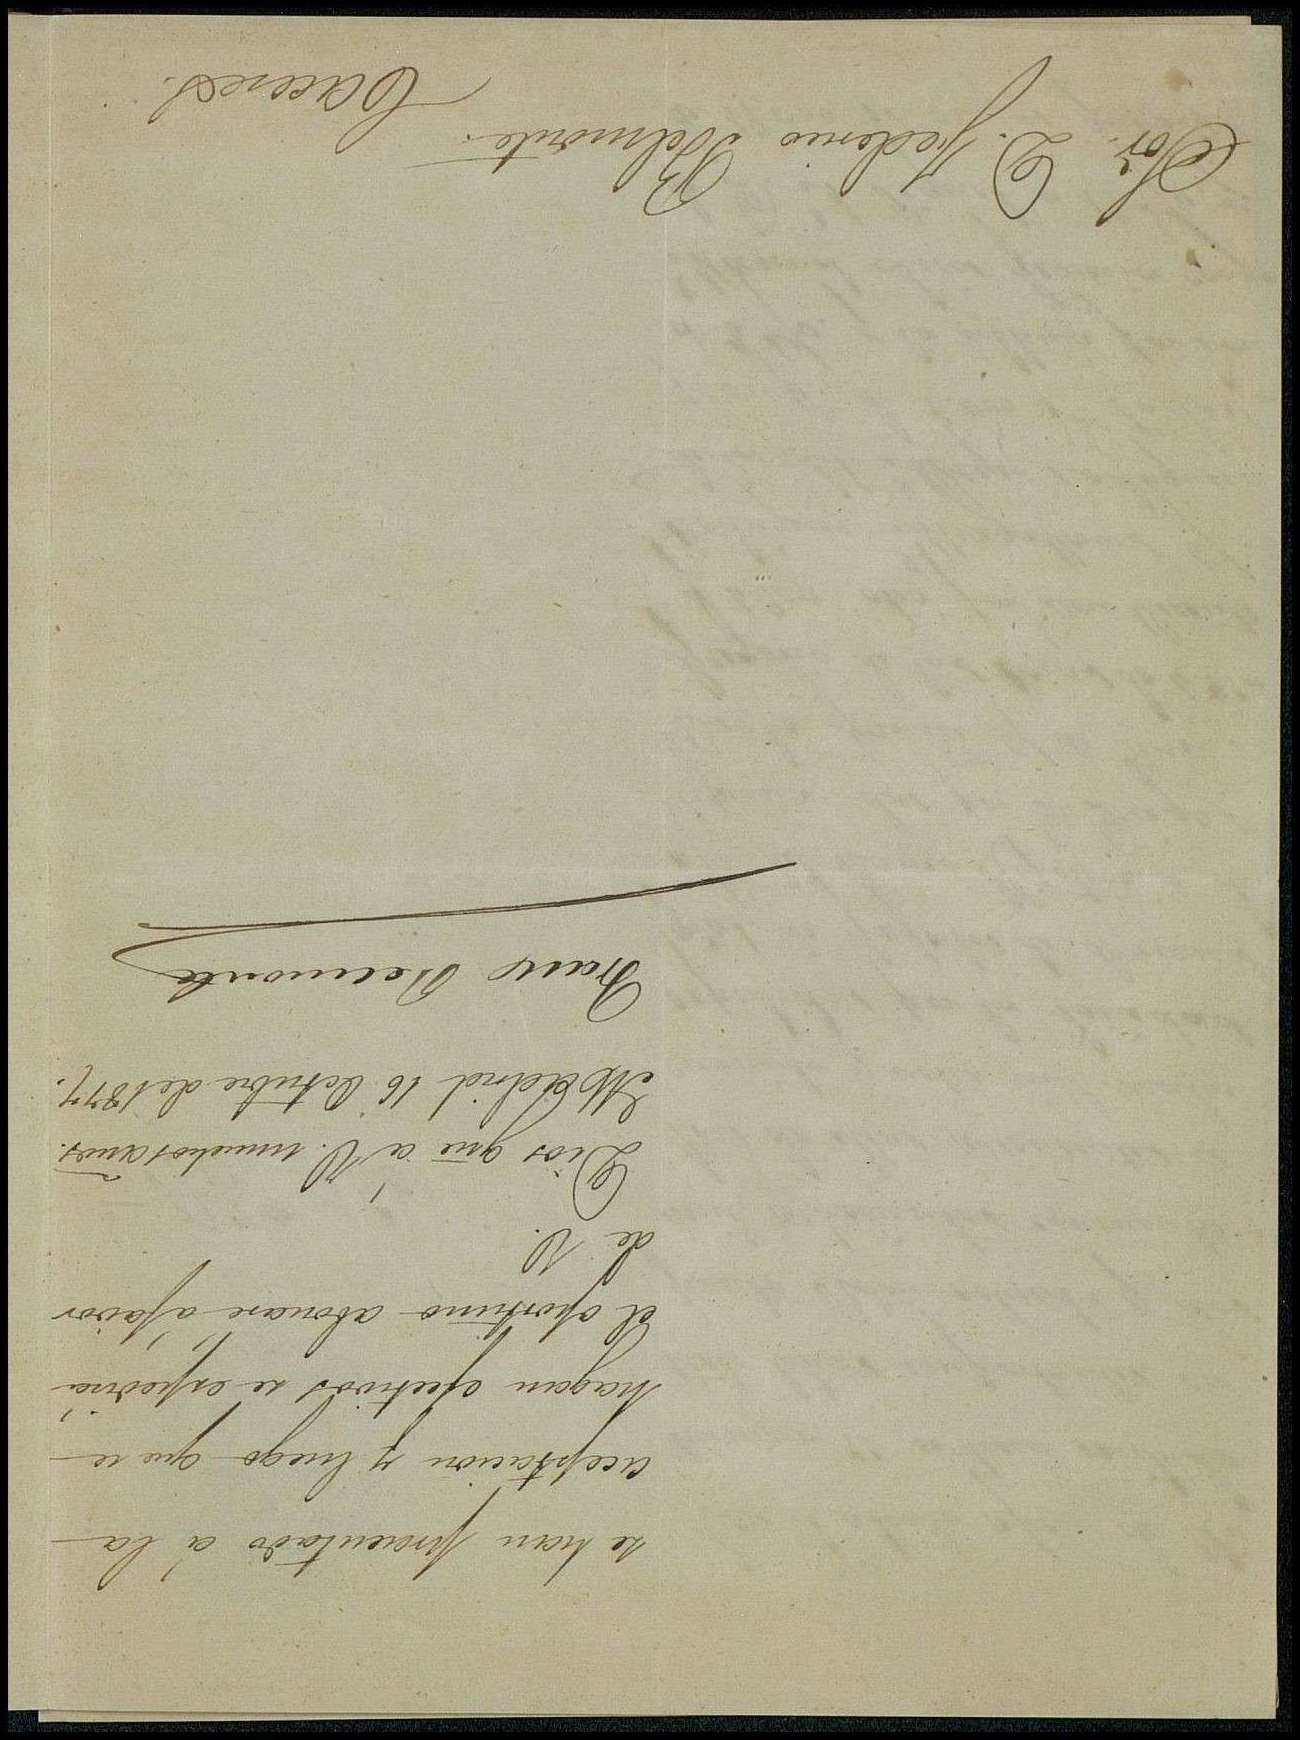 se han presentado á la
aceptacion y luego que se
hagan efectivos se espedirá
el oportuno abonare á favor
de V.
Dios gue á V. muchos años.
Madrid 16 Octubre de 1877.
Belmonte
Sor. D. Federico Belmonte.
Caceres.